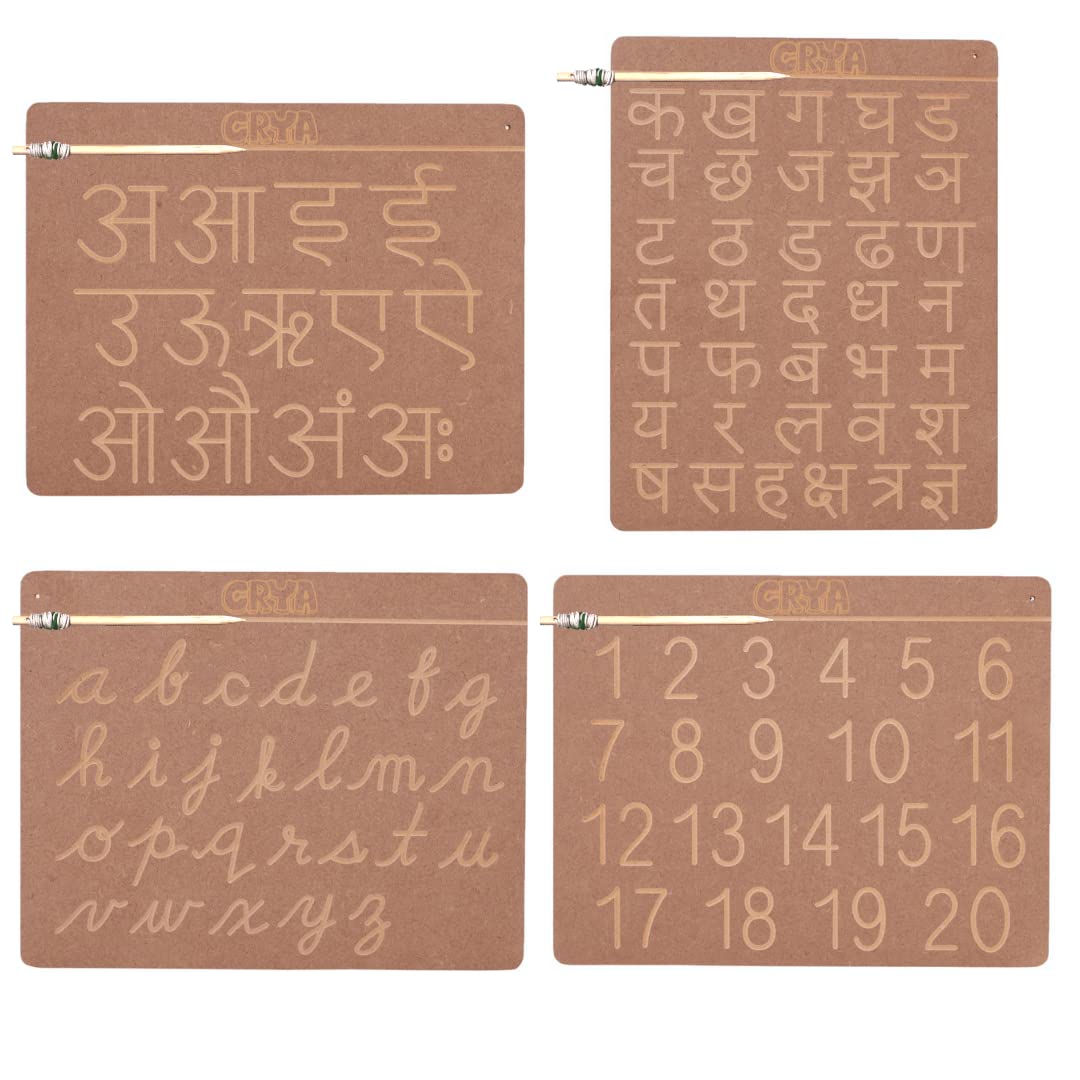 CRYA
अ आ इ ई
उ ऊ ऋ ए ऐ
ओ औ अं अः
CRYA
क ख ग घ ड
च छ ज झ ञ
ट ठ ड ढ ण
त थ द ध न
प फ ब भ म
य र ल व श
ष स ह क्ष त्र ज्ञ
CRYA
a b c d e f g
h i j k l m n
o p q r s t u
v w x y z
CRYA
1 2 3 4 5 6
7 8 9 10 11
12 13 14 15 16
17 18 19 20